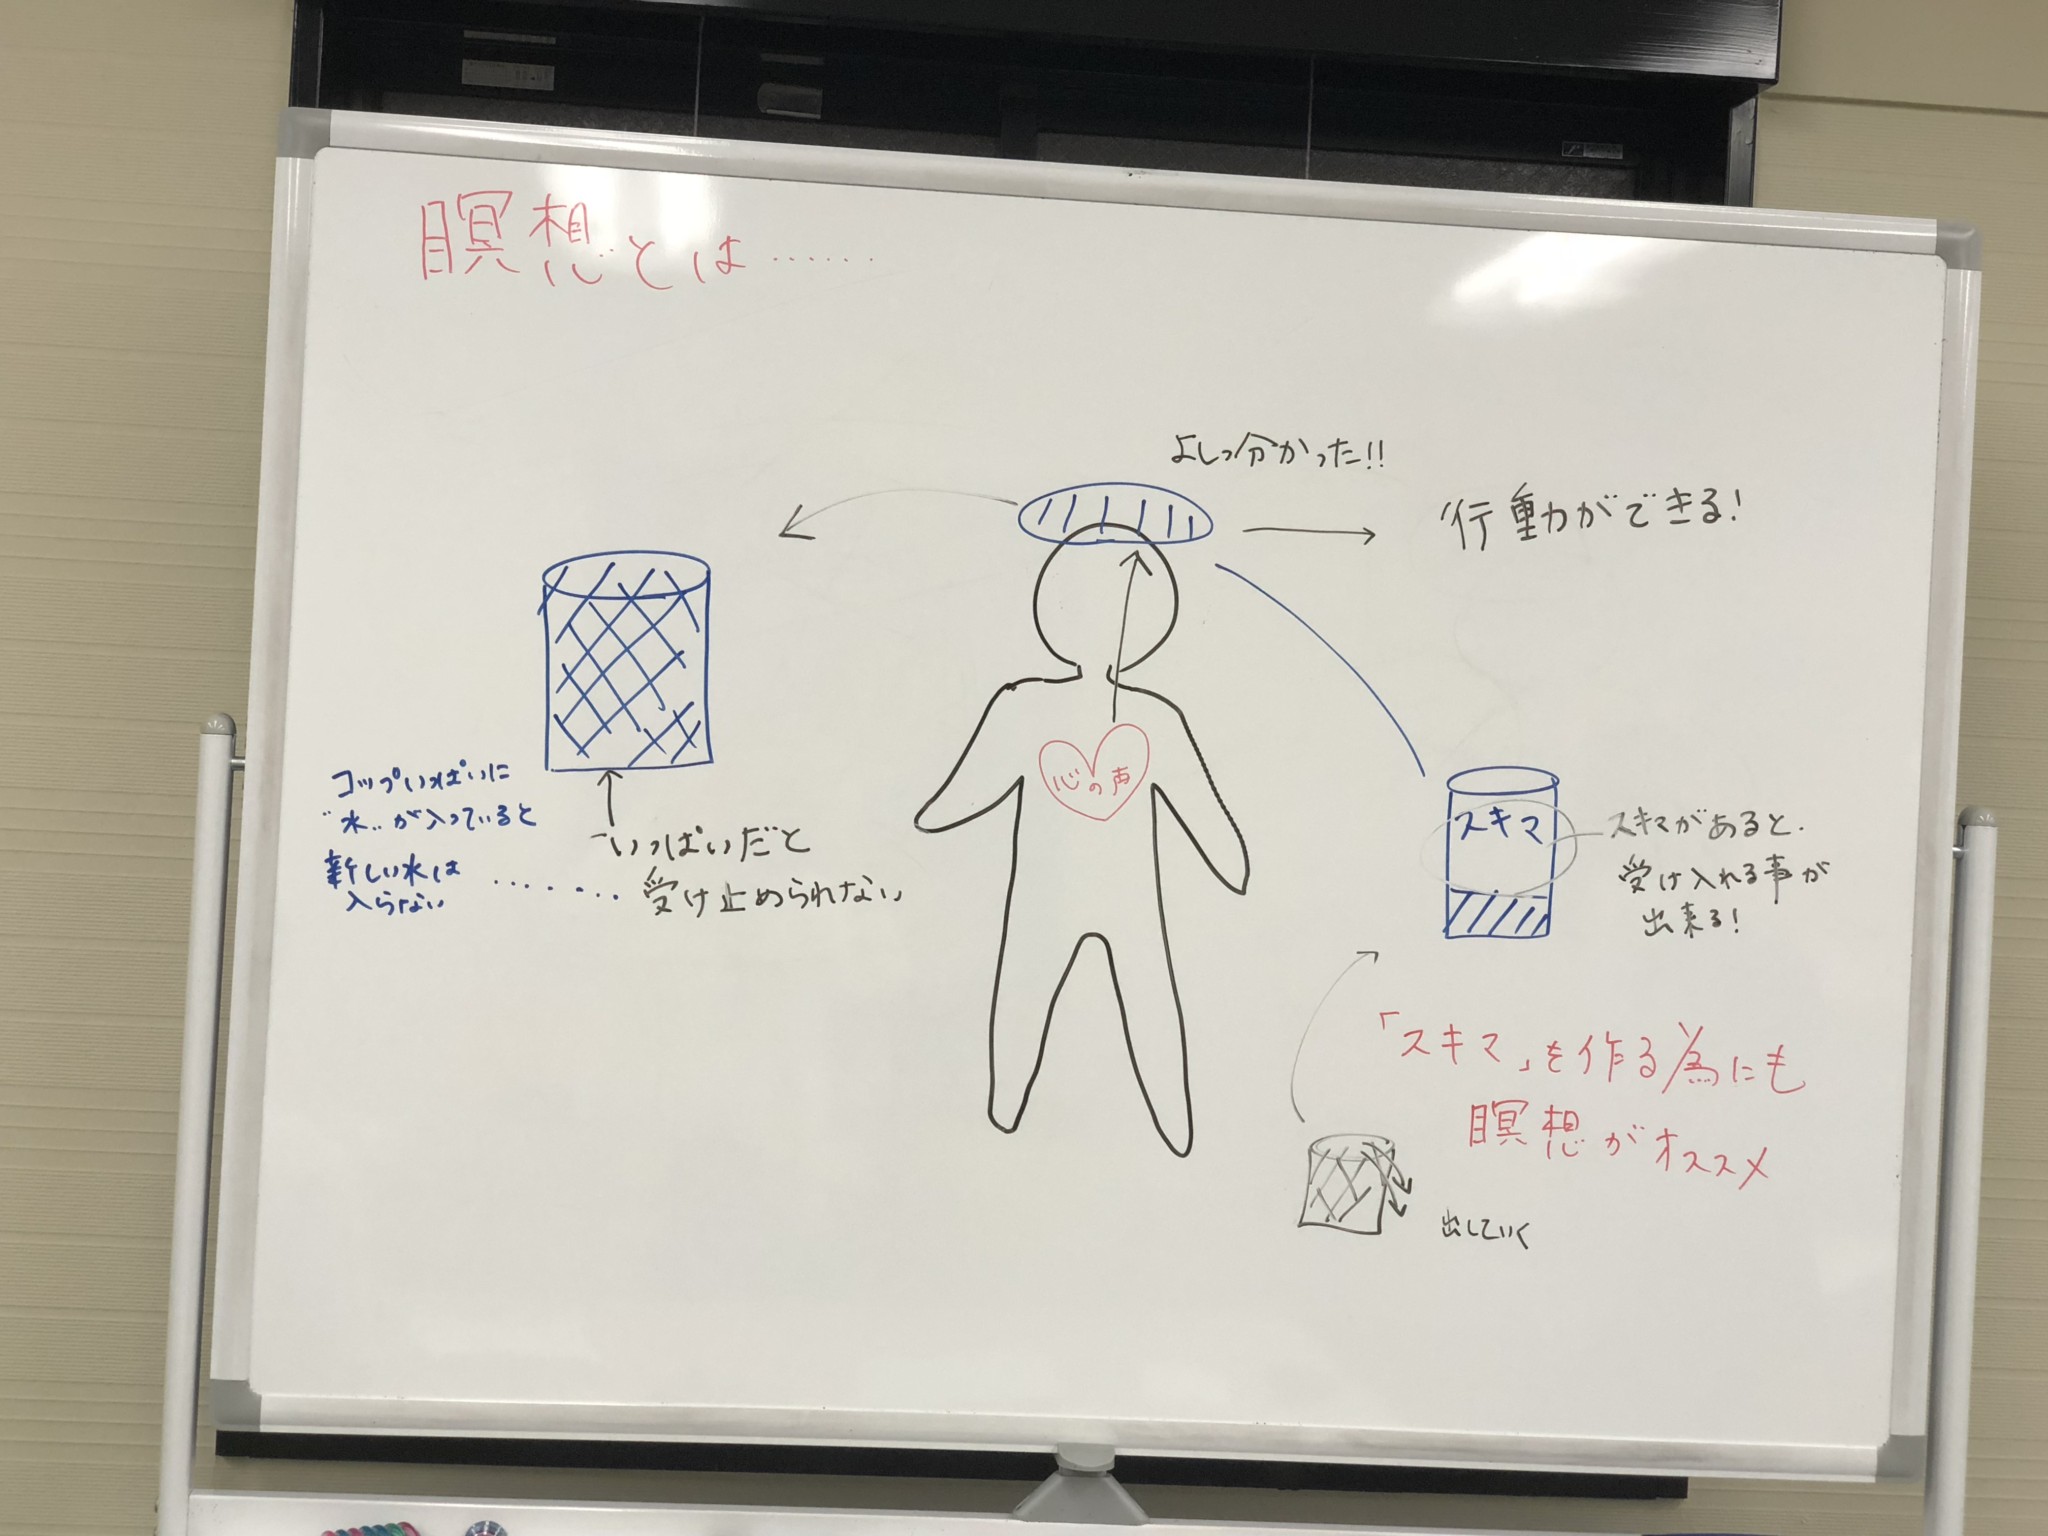 瞑想とは……
よしっ分かった!!
行動ができる!
心の声
コップいっぱいに
"水"が入っていると
新しい水は
入らない
…….
いっぱいだと
受け止められない
スキマ
スキマがあると.
受け入れる事が
出来る!
「スキマ」を作る為にも
瞑想がオススメ
出していく